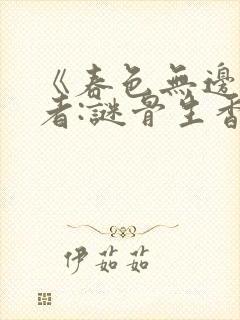 《春色無邊
者:謎骨生香
伊茹茹